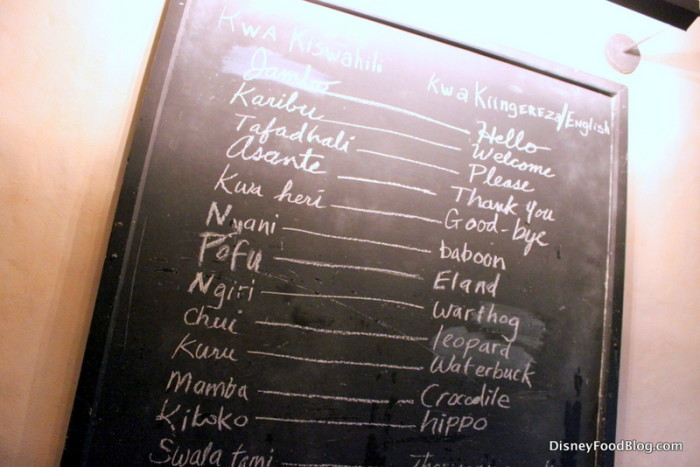 Kwa Kiswahili Kwa Kiingereza/English
Jambo Hello
Karibu Welcome
Tafadhali Please
Asante Thank you
Kwa heri Good-bye
Nyani baboon
Pofu Eland
Ngiri warthog
Chui leopard
Kuru Waterbuck
Mamba Crocodile
Kiboko hippo
Swala tomi
DisneyFoodBlog.com